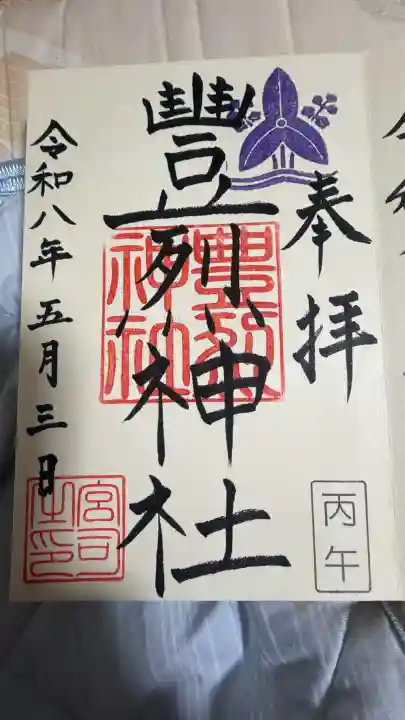 奉拝
豐烈神社
豊烈神社
令和八年五月三日
宮司之印
丙午